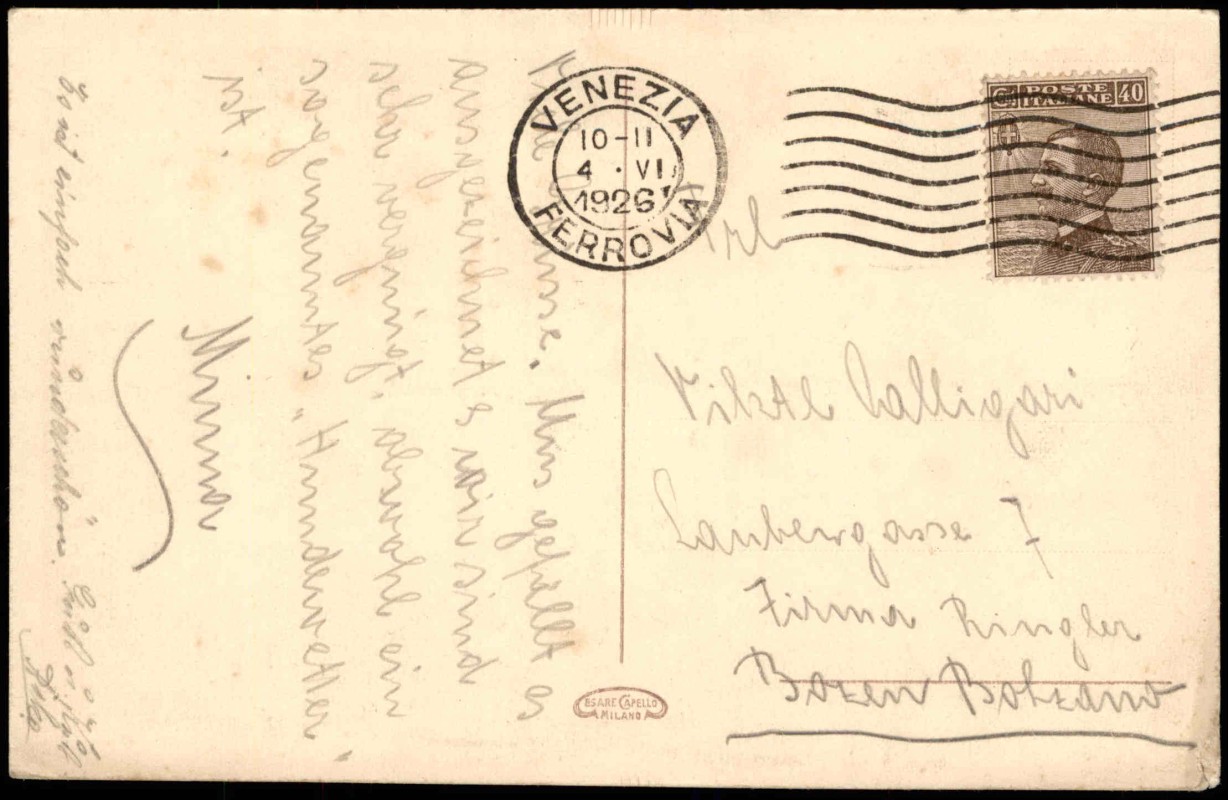 VENEZIA
10-11
4 · VI
1926
FERROVIA
C. POSTE ITALIANE 40
Frl
Viktl Calligari
Laubengasse 7
Firma Ringler
Bozen Bolzano
ESARE CAPELLO
MILANO
Mir gefällt es
ausgezeichnet & wir sind
sehr vergnügt, obwohl ein
sogenanntes „Hundewetter"
ist.
Minna
Es ist einfach wünderschön.